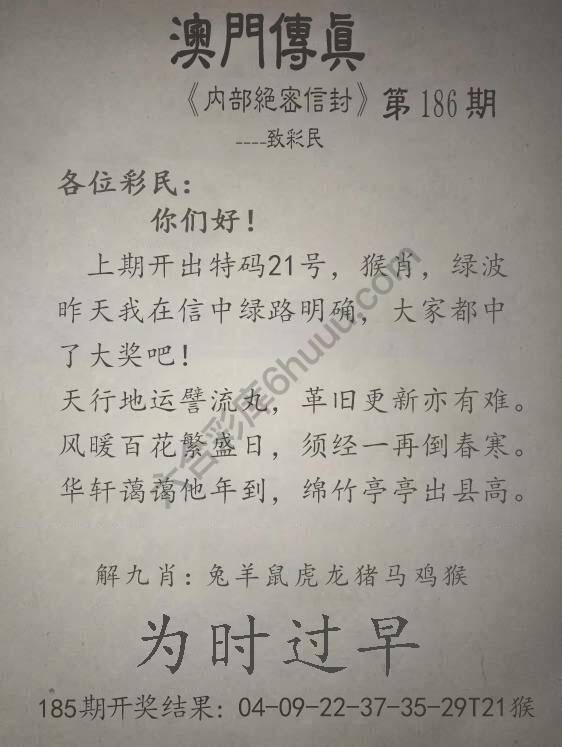 澳門傳眞
《内部絕密信封》第186期
----致彩民
各位彩民：
你们好！
上期开出特码21号，猴肖，绿波
昨天我在信中绿路明确，大家都中
了大奖吧！
天行地运譬流丸，革旧更新亦有难。
风暖百花繁盛日，须经一再倒春寒。
华轩蔼蔼他年到，绵竹亭亭出县高。
解九肖：兔羊鼠虎龙猪马鸡猴
为时过早
185期开奖结果：04-09-22-37-35-29T21猴
六合彩库6huuu.com